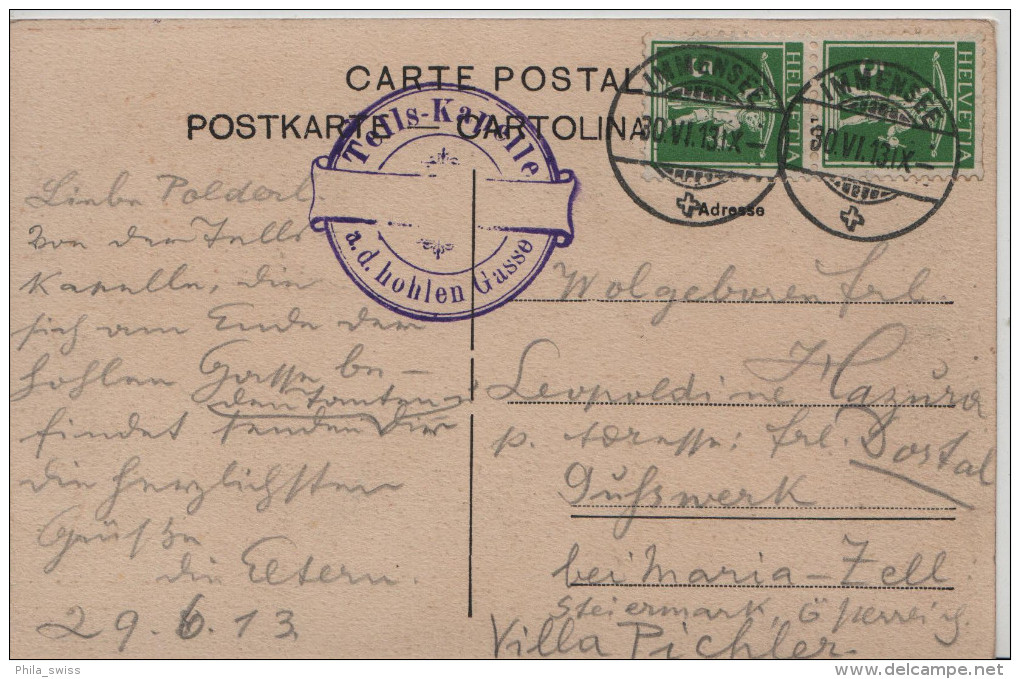 CARTE POSTAL
POSTKARTE – CARTOLINA
Tells-Kapelle
a. d. hohlen Gasse
5
HELVETIA
5
HELVETIA
IMMENSEE
30.VI.13.IX–
IMMENSEE
30.VI.13.IX–
Adresse
Liebe Polderl.
Von der Tells
Kapelle, die
sich am Ende der
hohlen Gasse be-
den Tanten
findet senden Dir
die herzlichsten
Grüße
die Eltern.
29.6.13
Wolgeboren Frl.
Leopoldine Hazura
p. Adresse: Frl. Dostal
Gußwerk
bei Maria-Zell
Steiermark, Österreich.
Villa Pichler.
Phila_swiss
delcampe.net